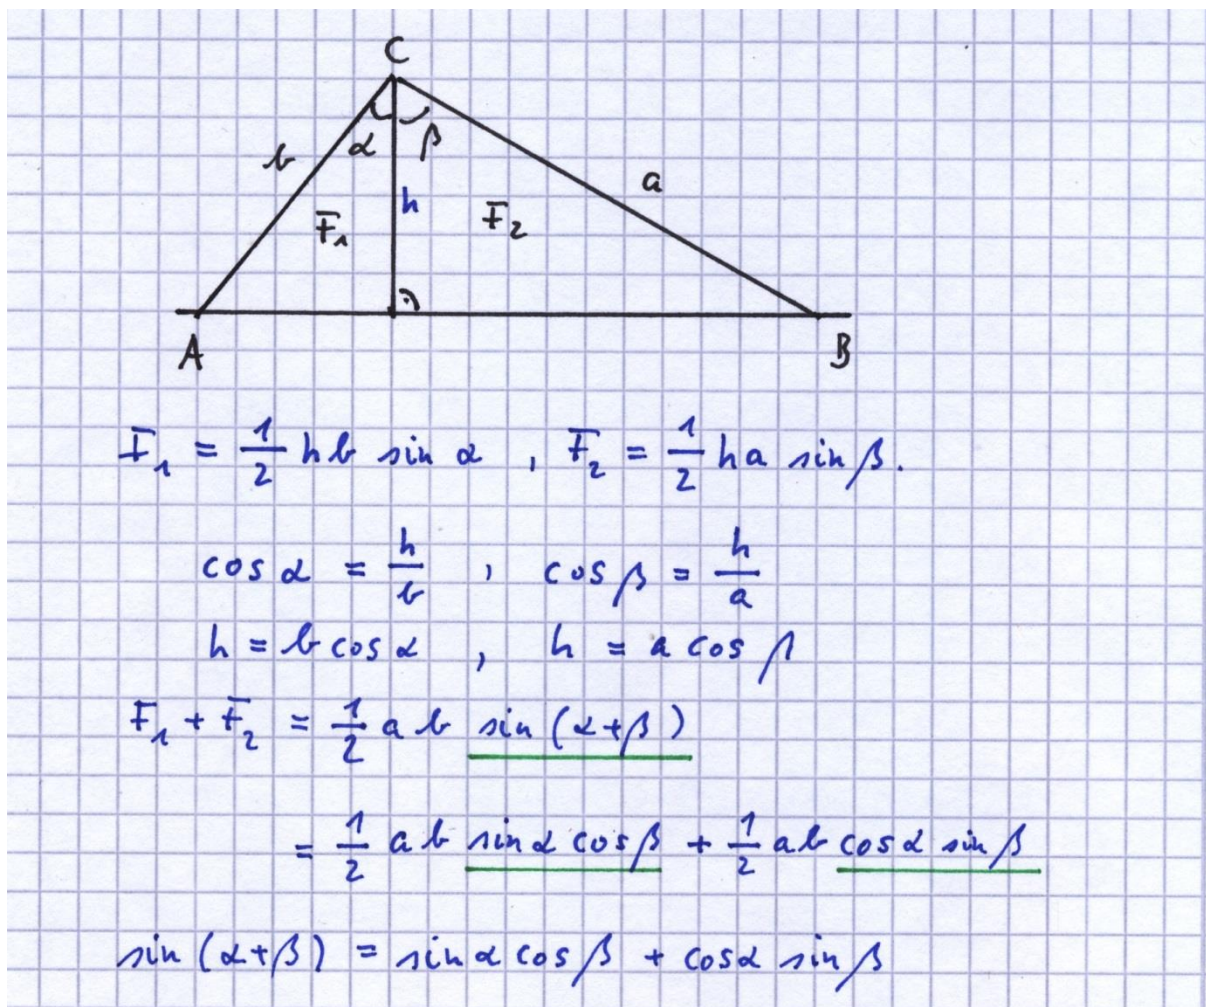 C
α β
b
a
h
F₁ F₂
A B
F₁ = 1/2 h b sin α , F₂ = 1/2 h a sin β.
cos α = h/b , cos β = h/a
h = b cos α , h = a cos β
F₁ + F₂ = 1/2 a b sin (α+β)
= 1/2 a b sin α cos β + 1/2 a b cos α sin β
sin (α+β) = sin α cos β + cos α sin β